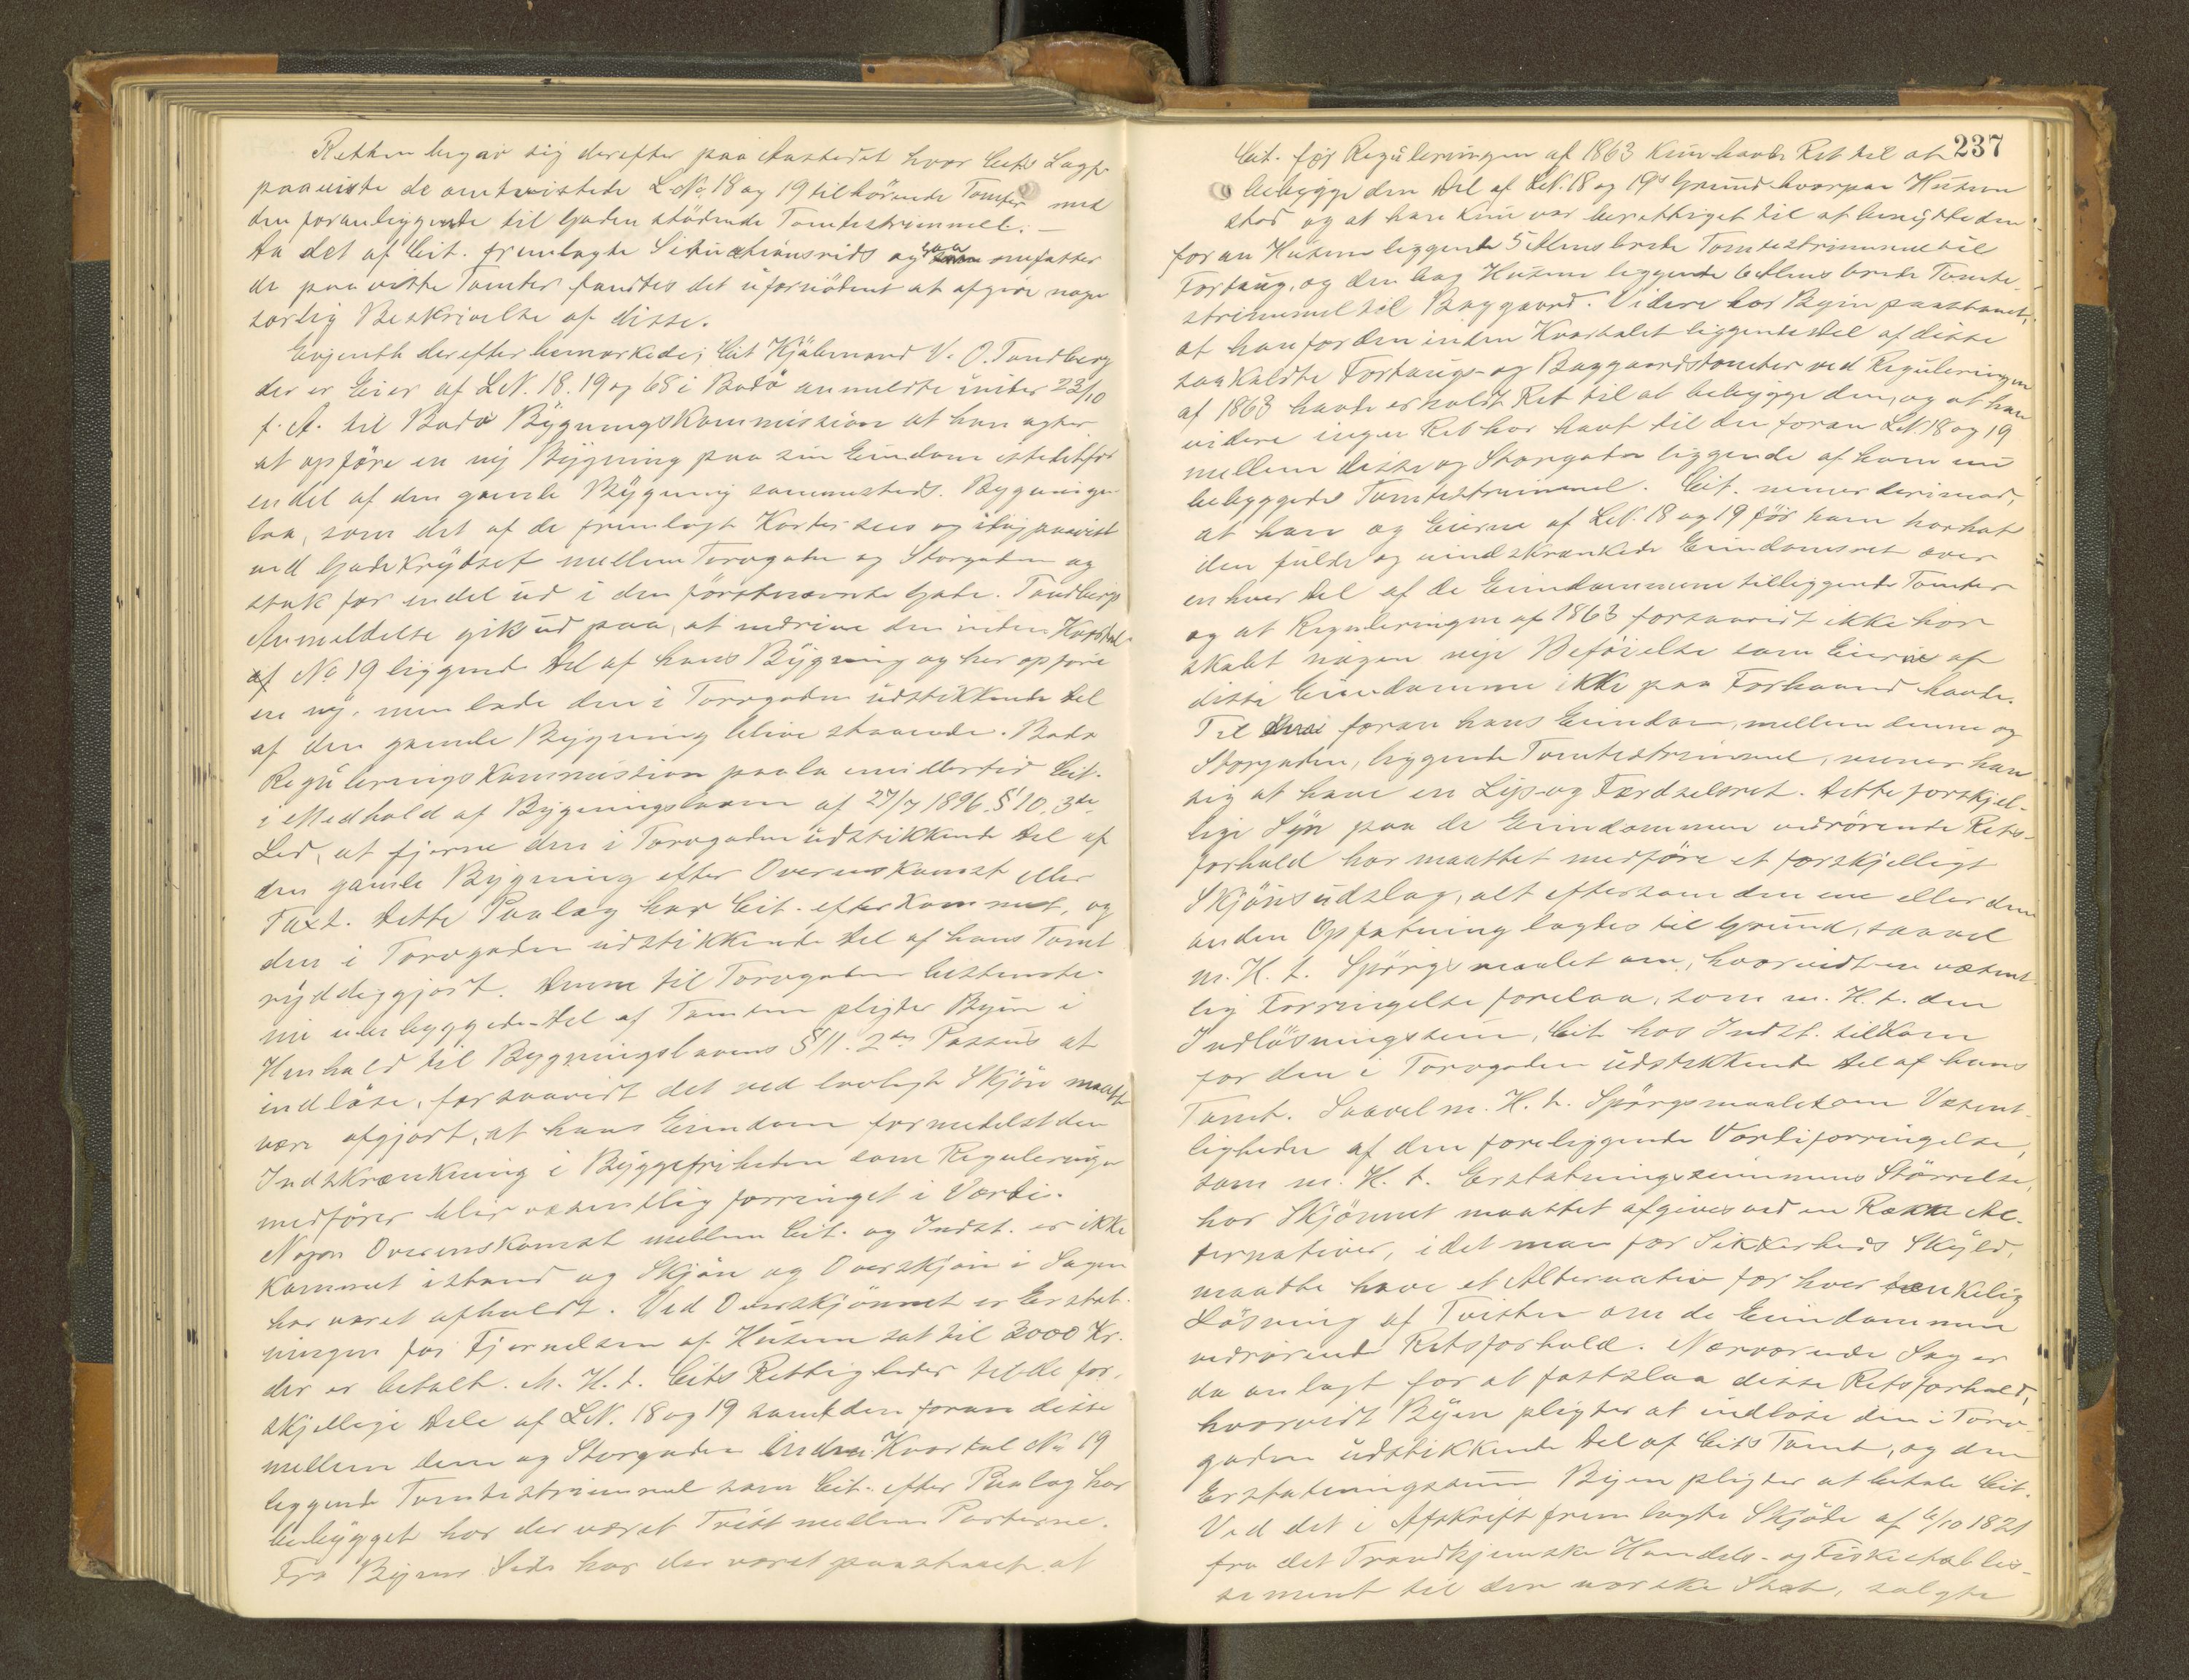 Retten begav sig derefter paa Aastedet hvor Cits Sagf.
paaviste de omtvistede L. No 18 og 19 tilhörende Tomter med
den foranliggende til Gaden stödende Tomtestrimmel. —
Da det af Cit. fremlagte Situationsrids ogsaa omfatter
de paaviste Tomter fandtes det ufornödent at afgive nogen
særlig Beskrivelse af disse.
Evjenth derefter bemærkede; Cit Kjöbmand V. O. Tandberg
der er Eier af L.N. 18. 19 og 68 i Bodö anmeldte under 23/10
f. A. til Bodö Bygningskommission at han agter
at opföre en ny Bygning paa sin Eiendom istedetfor
en del af den gamle Bygning sammesteds. Bygningen
laa, som det af de fremlagte Karter sees og idag paavist
ved Gadekrydset mellem Torvgaden og Storgaden og
stak for endel ud i den förstnævnte Gade. Tandbergs
Anmeldelse gik ud paa, at nedrive den inden Kvartal
af No 19 liggende Del af hans Bygning og her opföre
en ny, men lade den i Torvgaden udstikkende Del
af den gamle Bygning blive staaende. Bodö
Reguleringskommission paala imidlertid Cit.
i Medhold af Bygningsloven af 27/7 1896 § 10. 3die
Led, at fjerne den i Torvgaden udstikkende Del af
den gamle Bygning efter Overenskomst eller
Taxt. Dette Paalæg har Cit. efterkommet, og
den i Torvgaden udstikkende Del af hans Tomt
ryddiggjort. Denne til Torvgaden bestemte
nu ubebyggede Del af Tomten pligter Byen i
Henhold til Bygningslovens § 11. 2den Passus at
indlöse, forsaavidt det ved lovligt Skjön maatte
være afgjort, at hans Eiendom formedelst den
Indskrænkning i Byggefriheden som Reguleringen
medförer blir væsentlig forringet i Værdi.
Nogen Overenskomst mellem Cit. og Indst. er ikke
kommet istand og Skjön og Overskjön i Sagen
har været afholdt. Ved Overskjönnet er Erstat-
ningen for Fjernelsen af Husene sat til 3000 Kr.
der er betalt. M. H. t. Cits Rettigheder til de for-
skjellige Dele af L.N. 18 og 19 samt den foran disse
mellem dem og Storgaden inden Kvartal No 19
liggende Tomtestrimmel som Cit. efter Paalæg har
bebygget har der været Tvist mellem Parterne.
Fra Byens Side har der været paastaaet at
237
Cit. för Reguleringen af 1863 kun havde Ret til at
bebygge den Del af L.N. 18 og 19s Grund hvorpaa Husene
stod og at han kun var berettiget til at benytte den
foran Husene liggende 5 Alens brede Tomtestrimmel til
Fortaug, og den bag Husene liggende 6 Alens brede Tomte-
strimmel til Baggaard. Videre har Byen paastaaet,
at han for den inden Kvartalet liggende Del af disse
saakaldte Fortaugs- og Baggaardstomter ved Reguleringen
af 1863 havde erholdt Ret til at bebygge dem, og at han
videre ingen Ret har havt til den foran L.N. 18 og 19
mellem disse og Storgaden liggende af ham nu
bebyggede Tomtestrimmel. Cit. mener derimod,
at han og Eierne af L.N. 18 og 19 för ham har hat
den fulde og uindskrænkede Eiendomsret over
en hver Del af de Eiendommene tilliggende Tomter
og at Reguleringen af 1863 forsaavidt ikke har
skabt nogen ny Beföielse som Eierne af
disse Eiendomme ikke paa Forhaand havde.
Til den foran hans Eiendom, mellem denne og
Storgaden, liggende Tomtestrimmel, mener han
sig at have en Lys- og Færdselsret. Dette forskjel-
lige Syn paa de Eiendommen vedrörende Rets-
forhold har maattet medföre et forskjelligt
Skjönsudslag, alt eftersom den ene eller den
anden Opfatning lagdes til Grund, saavel
m. H. t. Spörgsmaalet om, hvorvidt en væsent-
lig Forringelse forelaa, som m. H. t. den
Indlösningssum, Cit. hos Indst. tilkom
for den i Torvgaden udstikkende Del af hans
Tomt. Saavel m. H. t. Spörgsmaalet om Væsent-
ligheden af den foreliggende Værdiforringelse,
som m. H. t. Erstatningssummens Störrelse,
har Skjönnet maattet afgives ved en Række Al-
ternativer, idet man for Sikkerheds Skyld,
maatte have et Alternativ for hver tænkelig
Lösning af Tvisten om de Eiendommen
vedrörende Retsforhold. Nærværende Sag er
da anlagt for at fastslaa disse Retsforhold,
hvorvidt Byen pligter at indlöse den i Torv-
gaden udstikkende Del af Cits Tomt, og den
Erstatningssum Byen pligter at betale Cit.
Ved det i Afskrift fremlagte Sköde af 6/10 1821
fra det Trondhjemske Handels- og Fiskeetablis-
sement til den norske Stat, solgte